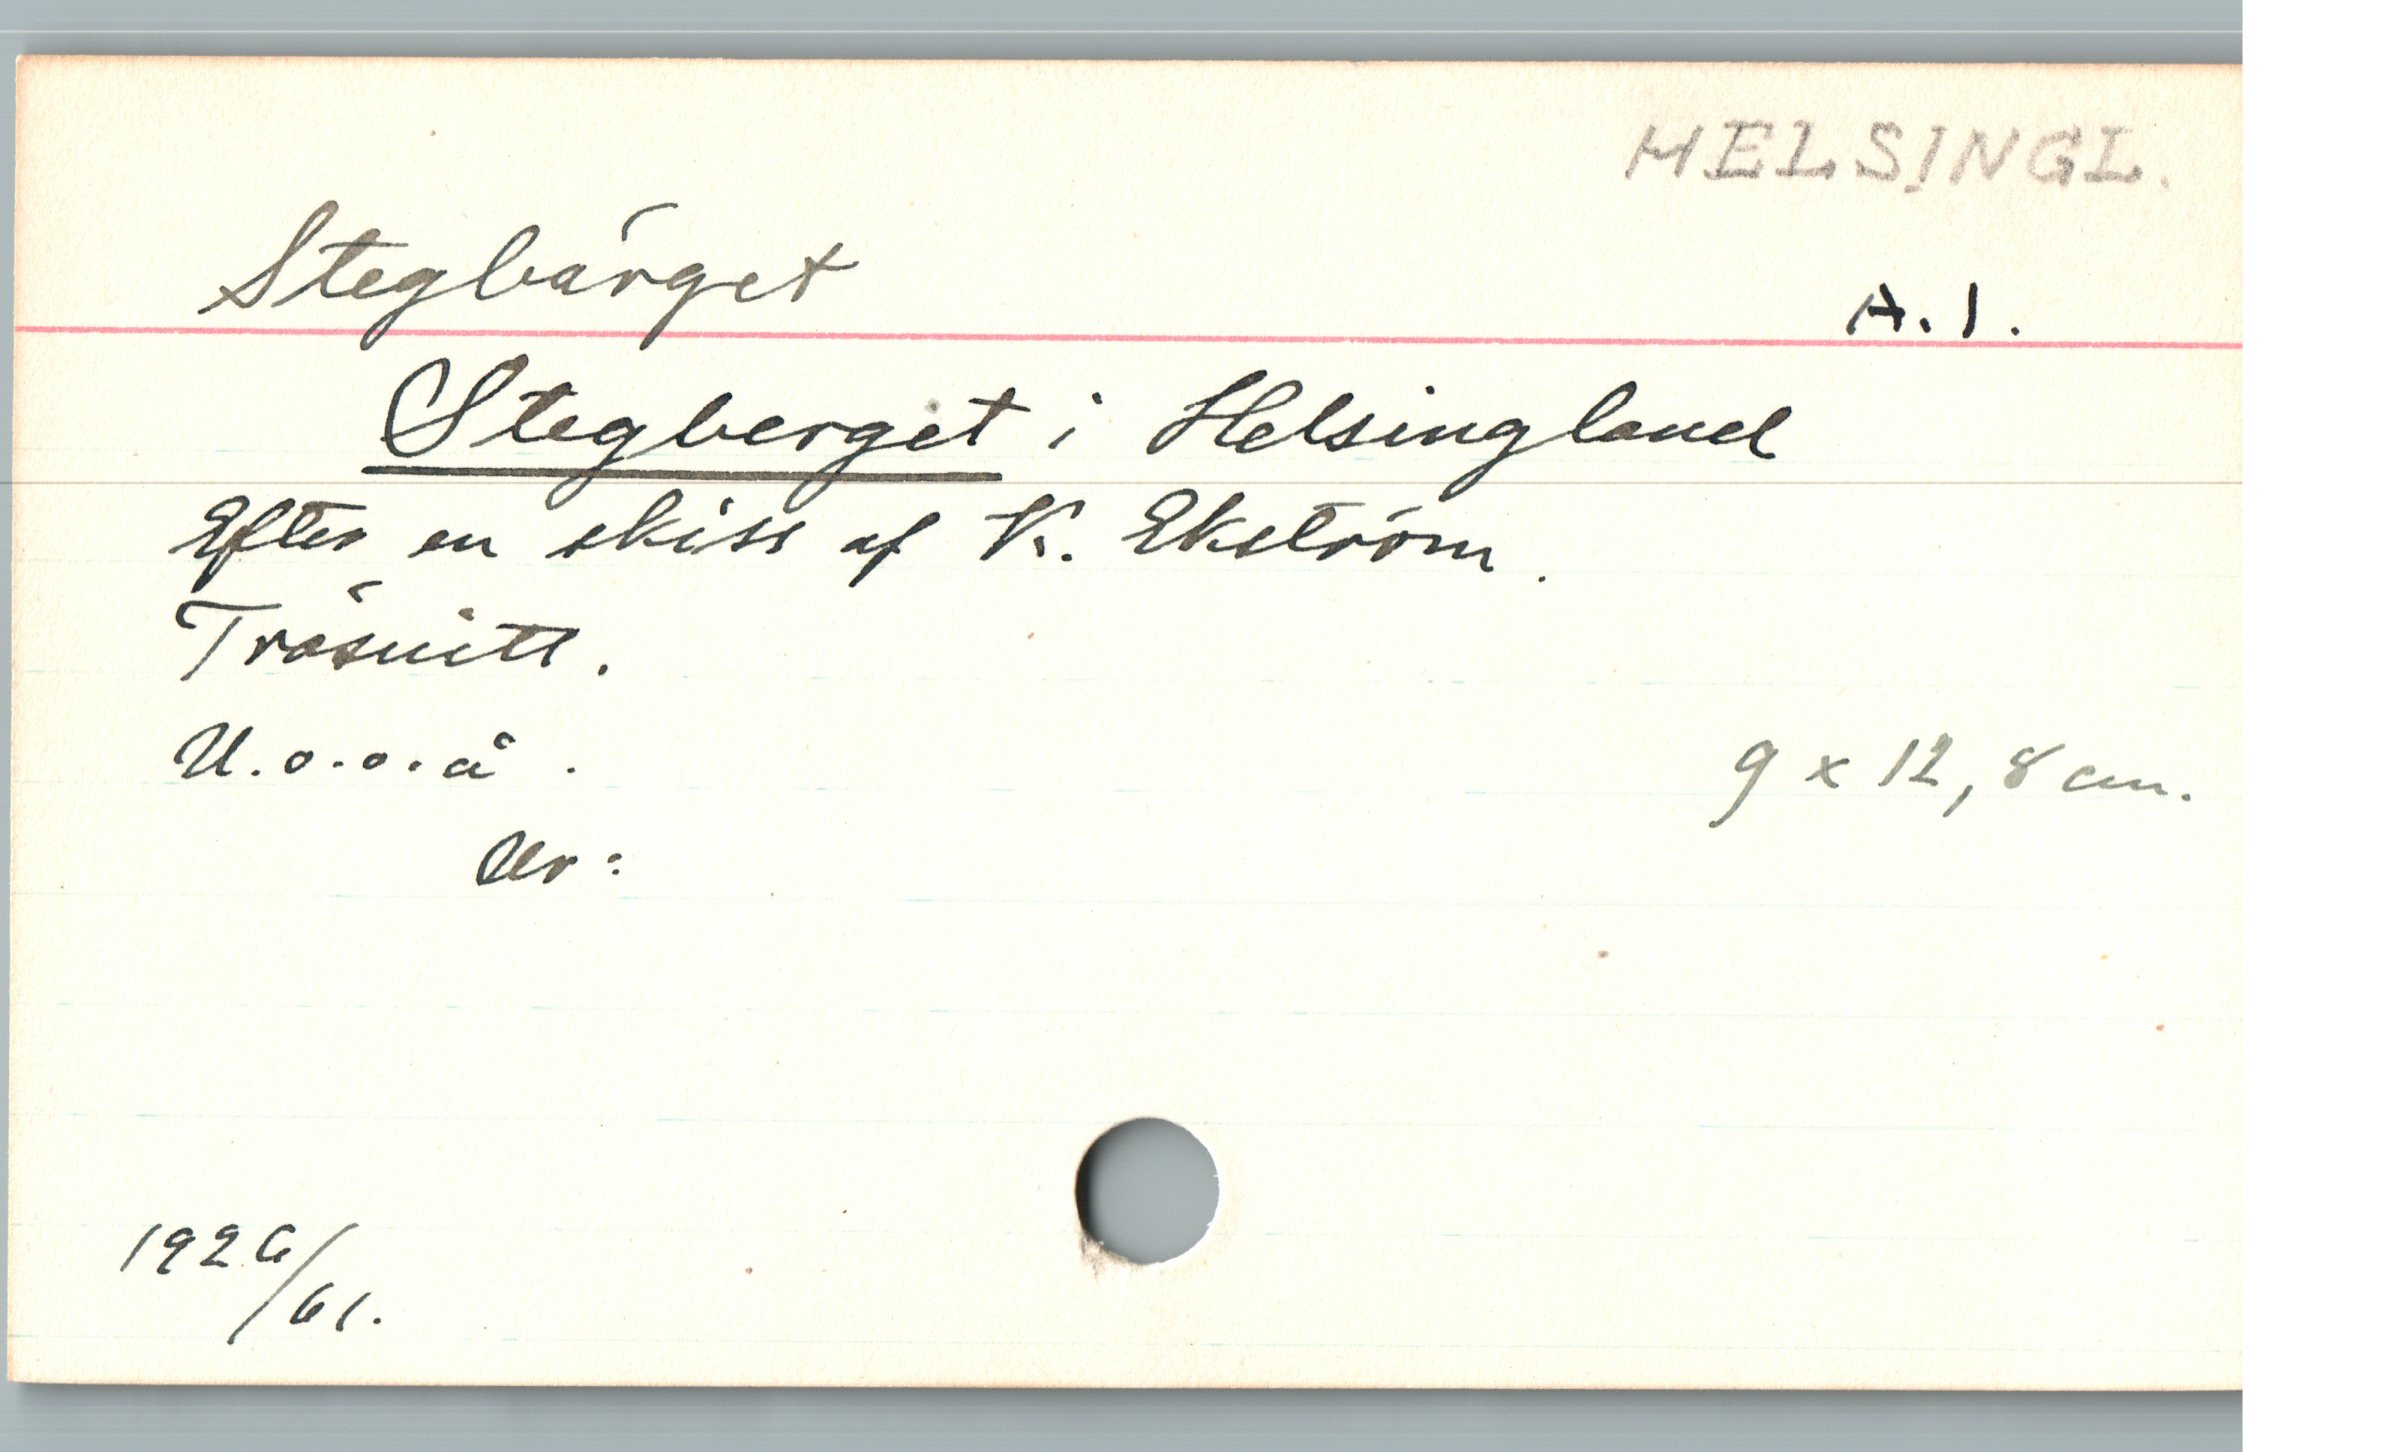 HELSINGL.
Stegbärget
A. 1.
Stegberget i Helsingland
Efter en skiss af K. Ekström.
Träsnitt.
U. o. o. å.
9 x 12,8 cm.
Ur:
1926/61.